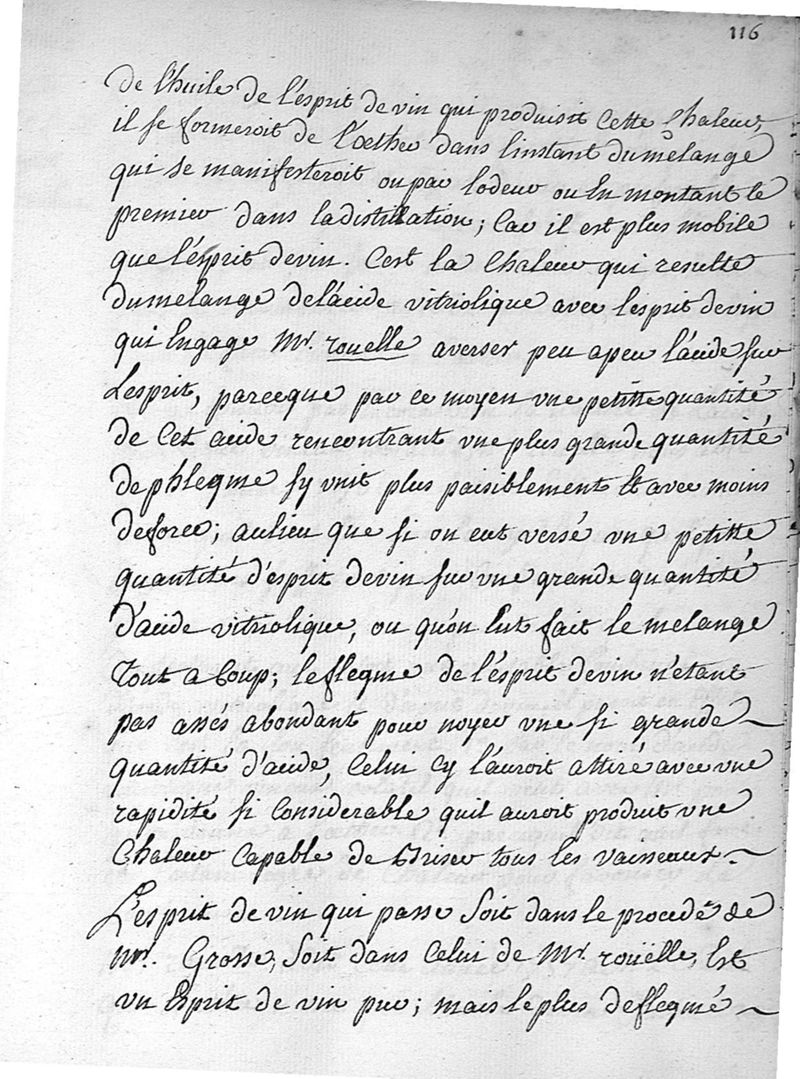 116
de l'huile de l'ésprit de vin qui produisit Cette Chaleur,
il se formeroit de l'œther dans l'instant dumelange
qui se manifesteroit ou par lodeur ou En montant le
premier dans ladistillation; Car il est plus mobile
que l'ésprit devin. C'est la Chaleur qui resulte
dumelange del'acide vitriolique avec lesprit devin
qui Engage Mr. rouelle averser peu apeu l'acide sur
L'esprit, parceque par ce moyen vne petitte quantité
de Cet acide rencontrant vne plus grande quantité
de phlegme sy vnit plus paisiblement Et avec moins
deforce; aulieu que si on eut versé vne petitte
quantité d'esprit devin sur vne grande quantité
d'acide vitriolique, ou qu'on Eut fait le melange
Tout a Coup; leflegme de l'ésprit devin n'etant
pas assés abondant pour noyer vne si grande
quantité d'acide, Celui Cy l'auroit attiré avec vne
rapidité si Considerable quil auroit produit vne
Chaleur Capable de Briser tous les vaisseaux.
L'esprit de vin qui passe Soit dans le procedé de
mr. Grosse, Soit dans Celui de Mr. rouëlle, Est
vn Esprit de vin pur; mais le plus deflegmé